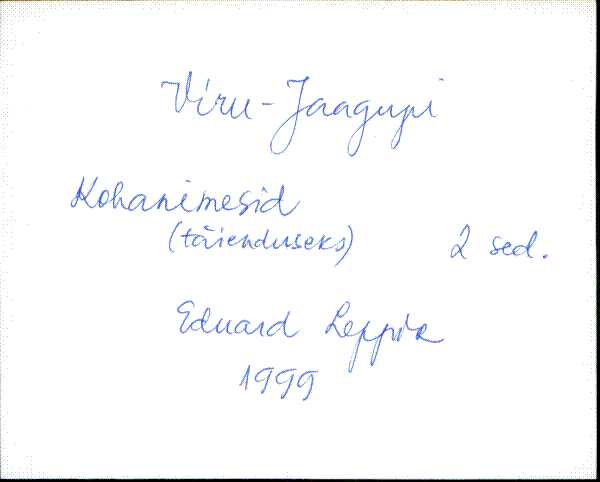 Viru-Jaagupi
Kohanimesid
(täienduseks) 2 sed.
Eduard Leppik
1999